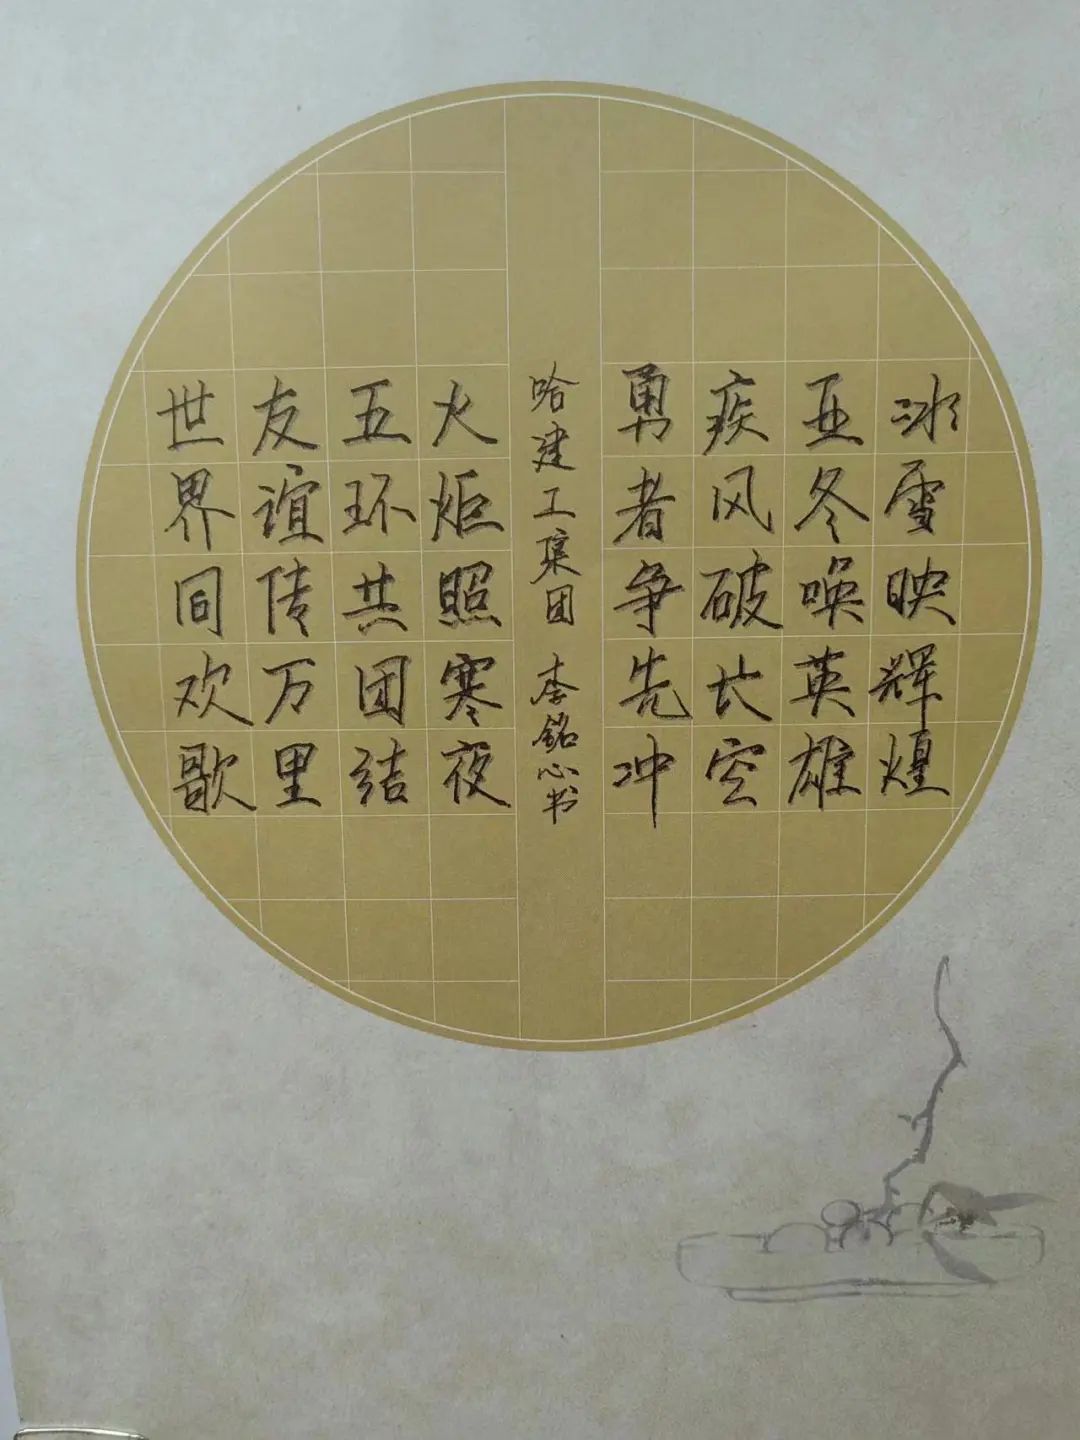 冰雪映辉煌
亚冬唤英雄
疾风破长空
勇者争先冲
哈建工集团 李铭心书
火炬照寒夜
五环共团结
友谊传万里
世界同欢歌